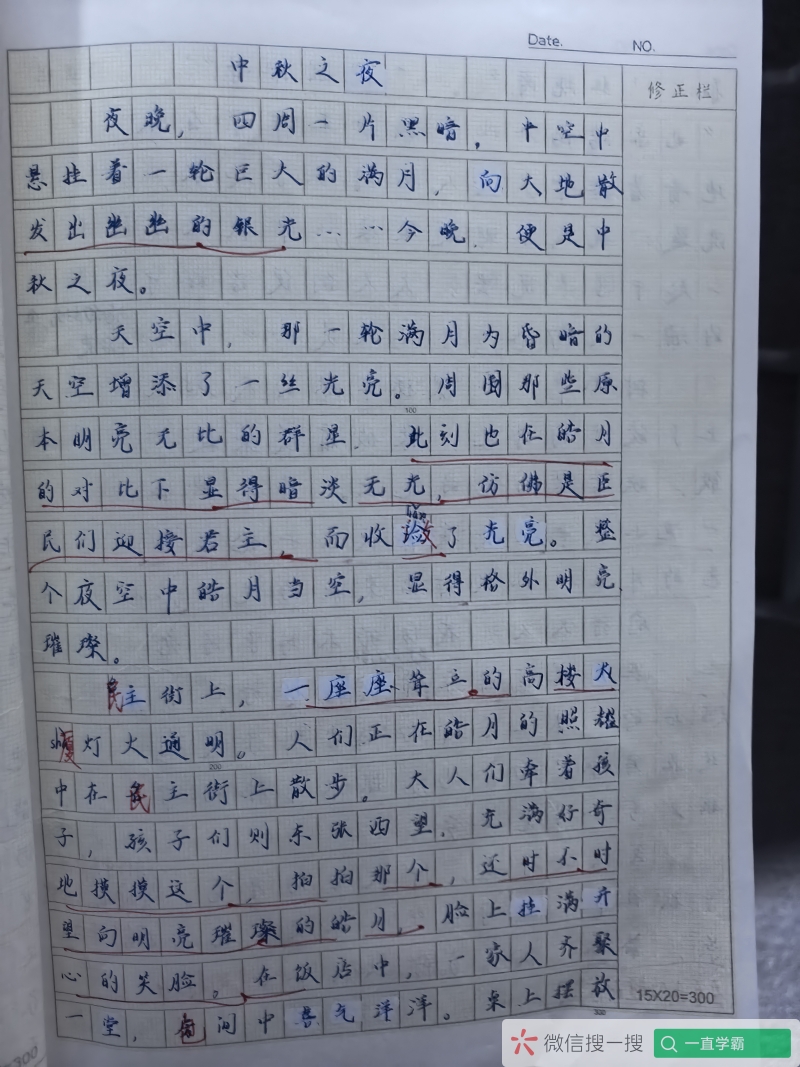 Date. NO.
中秋之夜
修正栏
夜晚，四周一片黑暗，半空中
悬挂着一轮巨大的满月，向大地散
发出幽幽的银光……今晚，便是中
秋之夜。
天空中，那一轮满月为昏暗的
天空增添了一丝光亮。周围那些原
100
本明亮无比的群星，此刻也在皓月
的对比下显得暗淡无光，仿佛是臣
民们迎接君主，而收敛了光亮。整
个夜空中皓月当空，显得格外明亮
璀璨。
民主街上，一座座耸立的高楼大
shà厦灯火通明。人们正在皓月的照耀
200
中在民主街上散步。大人们牵着孩
子，孩子们则东张西望，充满好奇
地摸摸这个，拍拍那个，还时不时
望向明亮璀璨的皓月，脸上挂满开
心的笑脸。在饭店中，一家人齐聚
一堂，包间中喜气洋洋。桌上摆放
15X20=300
300
微信搜一搜
一直学霸